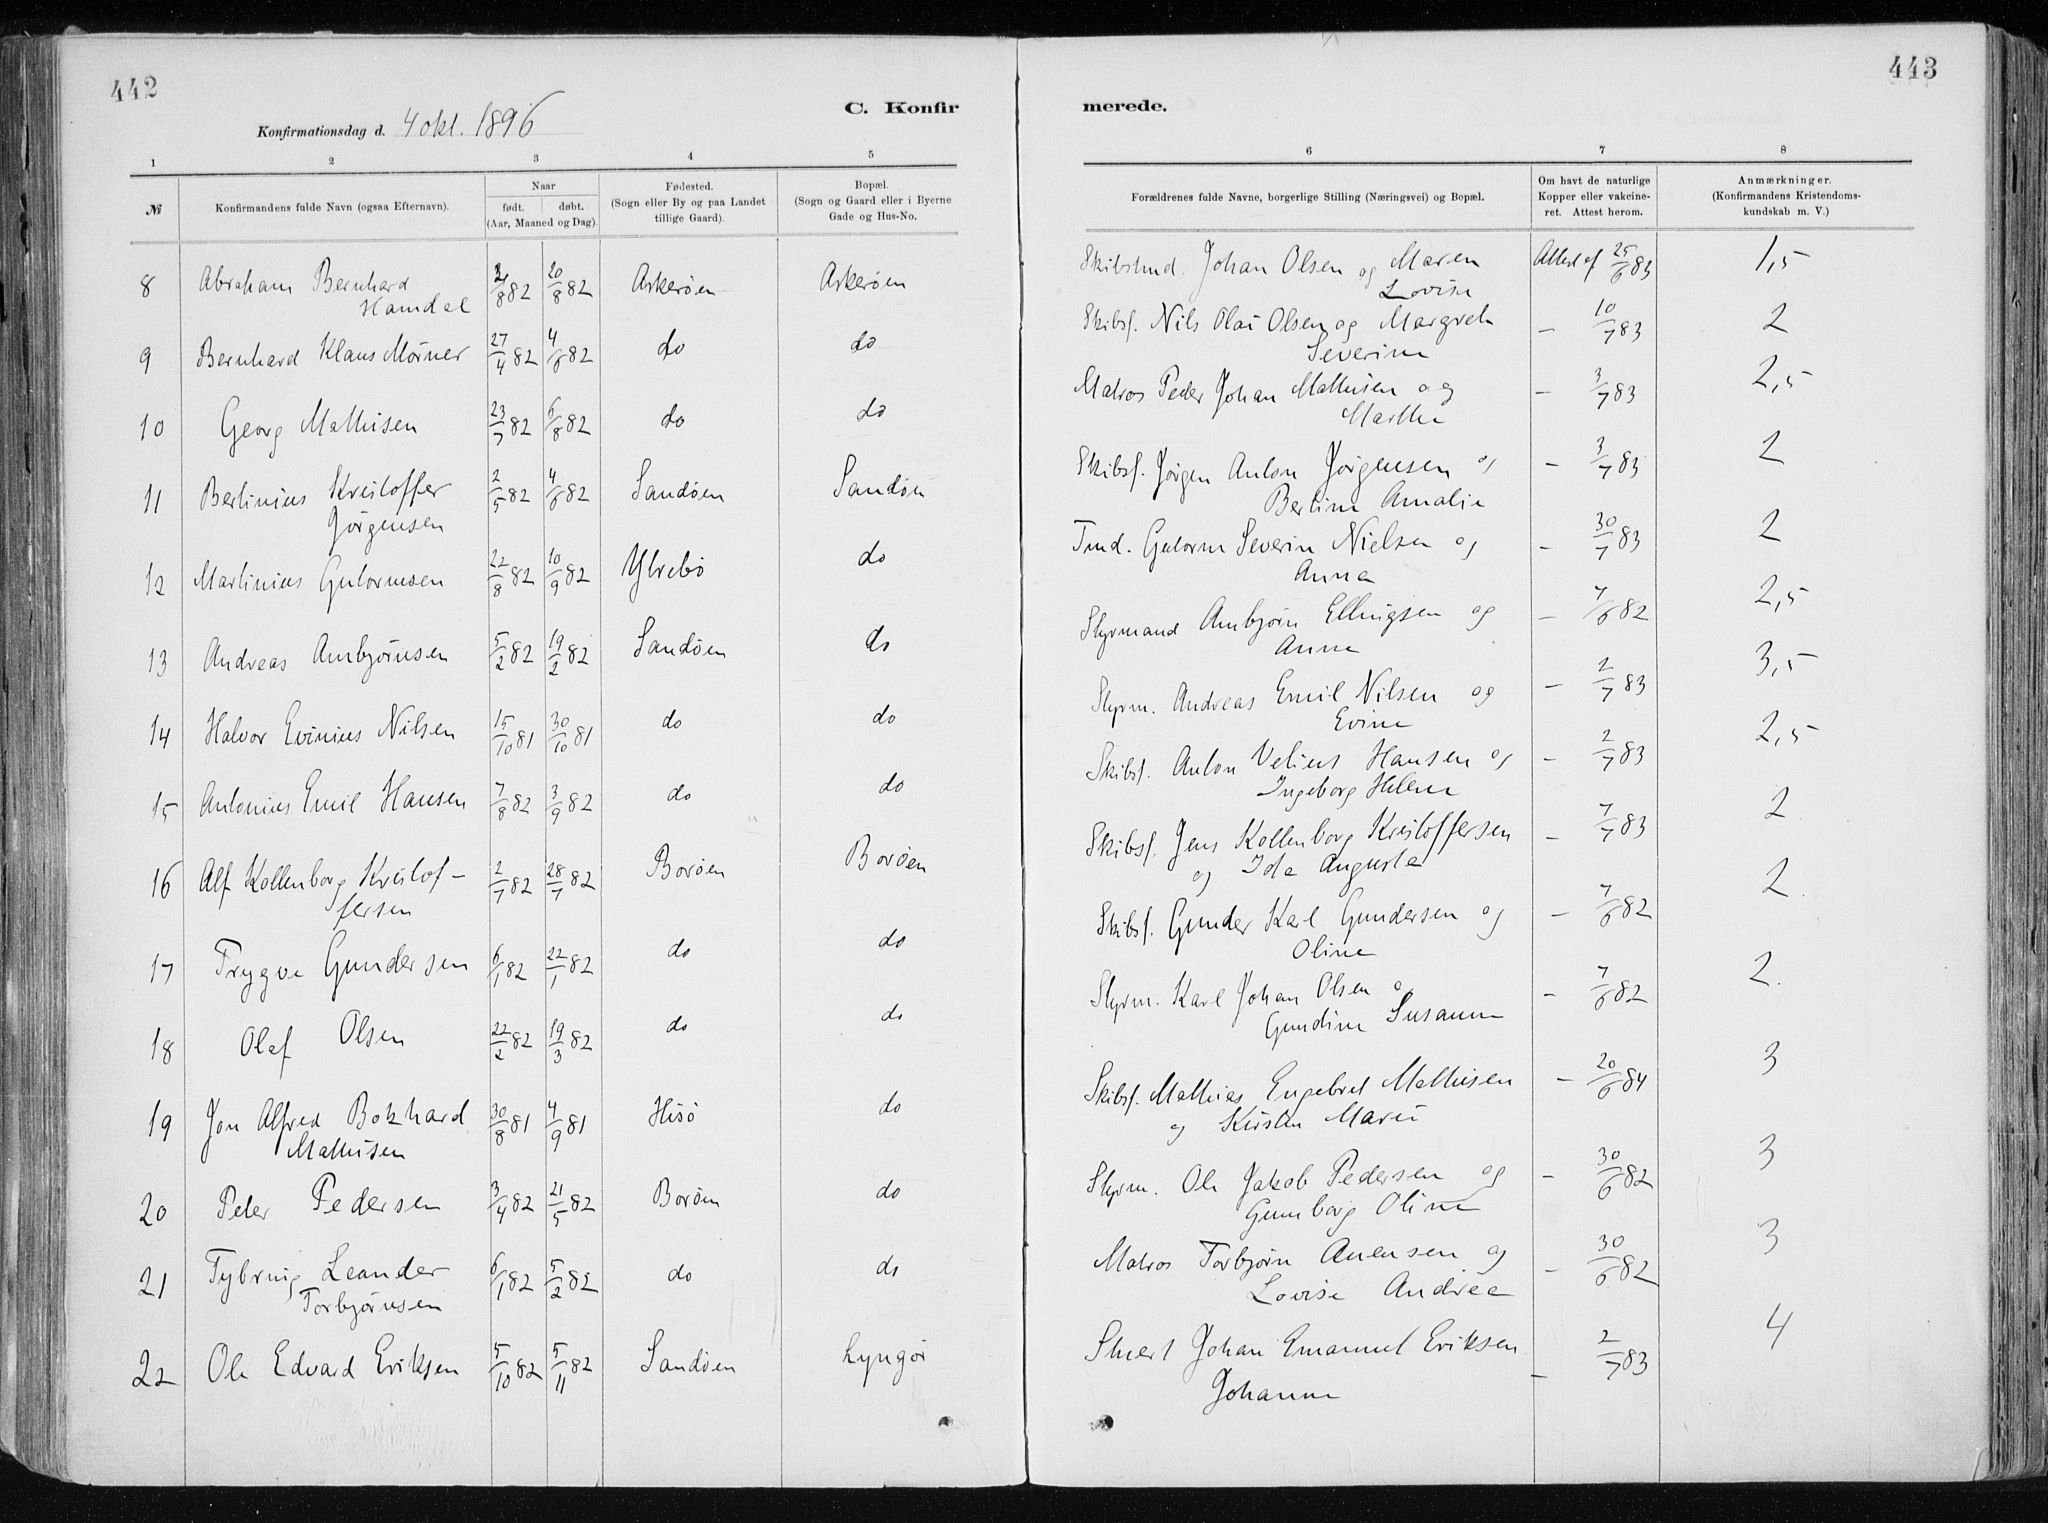 442
443
C. Konfir
merede.
Konfirmationsdag d. 4 okt. 1896
1 2 3 4 5
6 7 8
№ Konfirmandens fulde Navn (ogsaa Efternavn).
Naar
født. døbt.
(Aar, Maaned og Dag).
Fødested.
(Sogn eller By og paa Landet
tillige Gaard).
Bopæl.
(Sogn og Gaard eller i Byerne
Gade og Hus-No.
Forældrenes fulde Navne, borgerlige Stilling (Næringsvei) og Bopæl.
Om havt de naturlige
Kopper eller vakcine-
ret. Attest herom.
Anmærkninger.
(Konfirmandens Kristendoms-
kundskab m. V.)
8 Abraham Bernhard /8 82 20/8 82 Askerøen Askerøen Johan Olsen og Maren Attest af 25/6 83 1,5
Hamdal Lovise
9 Bernhard Klaus Mörner 27/4 82 4/6 82 do do Skibsf. Nils Olai Olsen og Margrete – 10/7 83 2
Severine
10 Georg Mathisen 23/7 82 6/8 82 do do Matros Peder Johan Mathisen og – 3/7 83 2,5
Marthe
11 Bertinius Kristoffer 2/5 82 4/6 82 Sandøen Sandøen Skibsf. Jørgen Anton Jørgensen og – 3/7 83 2
Jørgensen Bertine Amalie
12 Martinius Gutormsen 22/8 82 10/9 82 Ytrebö do Tmd. Gutorm Severin Nielsen og – 30/7 83 2
Anna
13 Andreas Ambjørnsen 5/2 82 19/2 82 Sandøen do Styrmand Ambjørn Ellingsen og – 7/6 82 2,5
Anne
14 Halvor Evinius Nilsen 15/10 81 30/10 81 do do Styrm. Andreas Emil Nilsen og – 2/7 83 3,5
Evine
15 Antonius Emil Hansen 7/8 82 3/9 82 do do Skibsf. Anton Velius Hansen og – 2/7 83 2,5
Ingeborg Helene
16 Alf Kollenborg Kristof- 2/7 82 28/7 82 Borøen Borøen Skibsf. Jens Kollenborg Kristoffersen – 7/7 83 2
fersen og Ida Augusta
17 Trygve Gundersen 6/1 82 22/1 82 do do Skibsf. Gunder Karl Gundersen og – 7/6 82 2.
Oline
18 Olaf Olsen 22/2 82 19/3 82 do do Styrm. Karl Johan Olsen og – 7/6 82 2.
Gundine Susanne
19 Jon Alfred Bokhard 30/8 81 4/9 81 Hisö do Skibsf. Mathias Engebret Mathisen – 20/6 84 3
Mathisen og Kirsten Marie
20 Peter Pedersen 3/4 82 21/5 82 Borøen do Styrm. Ole Jakob Pedersen og – 30/6 82 3
Gunborg Oline
21 Tybring Leander 6/1 82 5/2 82 do do Matros Torbjørn Anensen og – 30/6 82 3
Torbjørnsen Lovise Andrea
22 Ole Edvard Eriksen 5/10 82 5/11 82 Sandøen Lyngør Stuert Johan Emanuel Eriksen – 2/7 83 4
Johanne